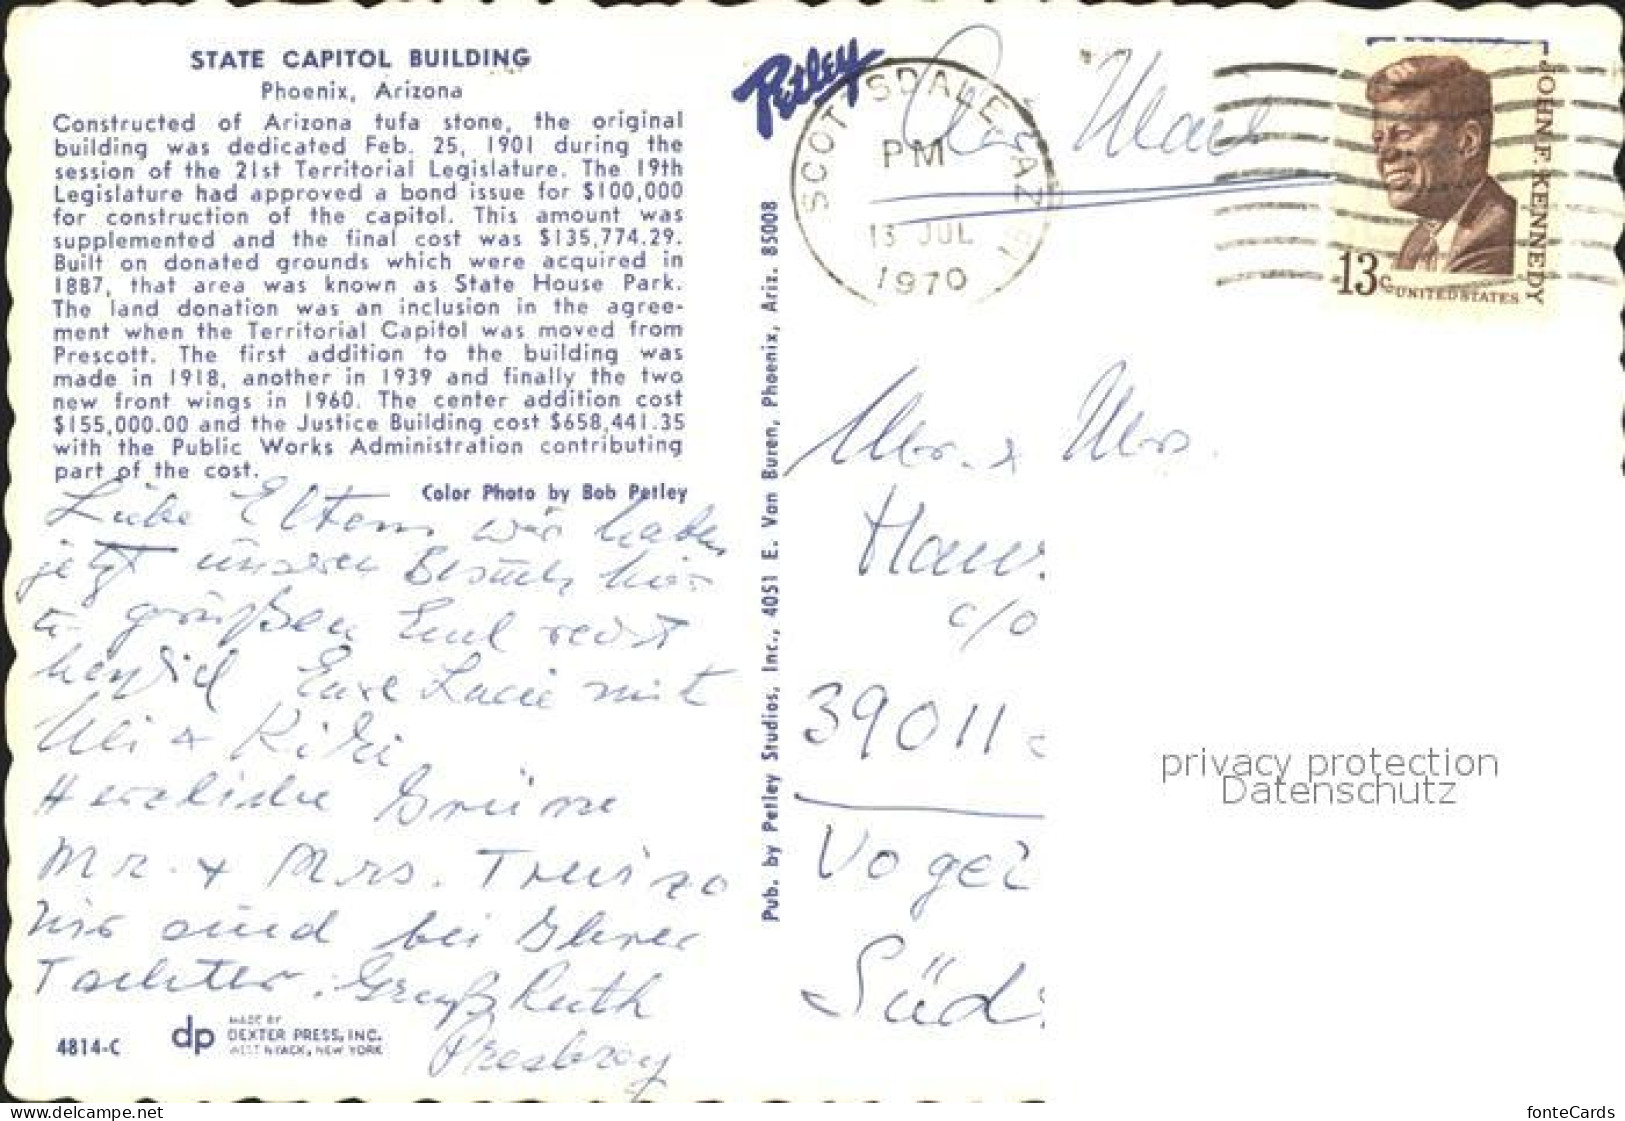 STATE CAPITOL BUILDING
Phoenix, Arizona
Constructed of Arizona tufa stone, the original
building was dedicated Feb. 25, 1901 during the
session of the 21st Territorial Legislature. The 19th
Legislature had approved a bond issue for $100,000
for construction of the capitol. This amount was
supplemented and the final cost was $135,774.29.
Built on donated grounds which were acquired in
1887, that area was known as State House Park.
The land donation was an inclusion in the agree-
ment when the Territorial Capitol was moved from
Prescott. The first addition to the building was
made in 1918, another in 1939 and finally the two
new front wings in 1960. The center addition cost
$155,000.00 and the Justice Building cost $658,441.35
with the Public Works Administration contributing
part of the cost.
Color Photo by Bob Petley
Liebe Eltern, wir haben
jetzt unseren Besuch hier
u. grüßen Euch recht
herzlich Eure Lucie mit
Uli + Kiki
Herzliche Grüsse
Mr. + Mrs.
wir sind bei Ihrer
Tochter. Gruß Ruth
4814-C
dp
MADE BY
DEXTER PRESS, INC.
WEST NYACK, NEW YORK
Petley
Pub. by Petley Studios, Inc., 4051 E. Van Buren, Phoenix, Ariz. 85008
SCOTTSDALE, AZ
PM
13 JUL
1970
Air Mail
JOHN F. KENNEDY
13c UNITED STATES
Mr. & Mrs.
c/o
39011
Vogel
Süd
privacy protection
Datenschutz
www.delcampe.net
fonteCards